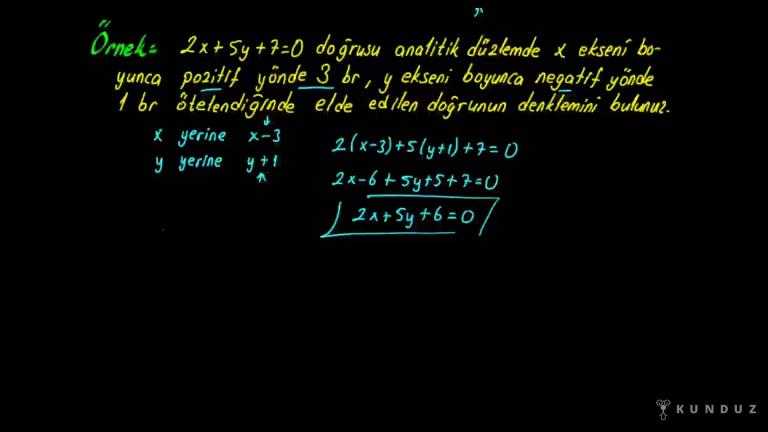 Örnek= 2x+5y+7=0 doğrusu analitik düzlemde x ekseni bo-
yunca pozitif yönde 3 br, y ekseni boyunca negatif yönde
1 br ötelendiğinde elde edilen doğrunun denklemini bulunuz.
x yerine x-3
y yerine y+1
2(x-3)+5(y+1)+7=0
2x-6+5y+5+7=0
2x+5y+6=0
KUNDUZ